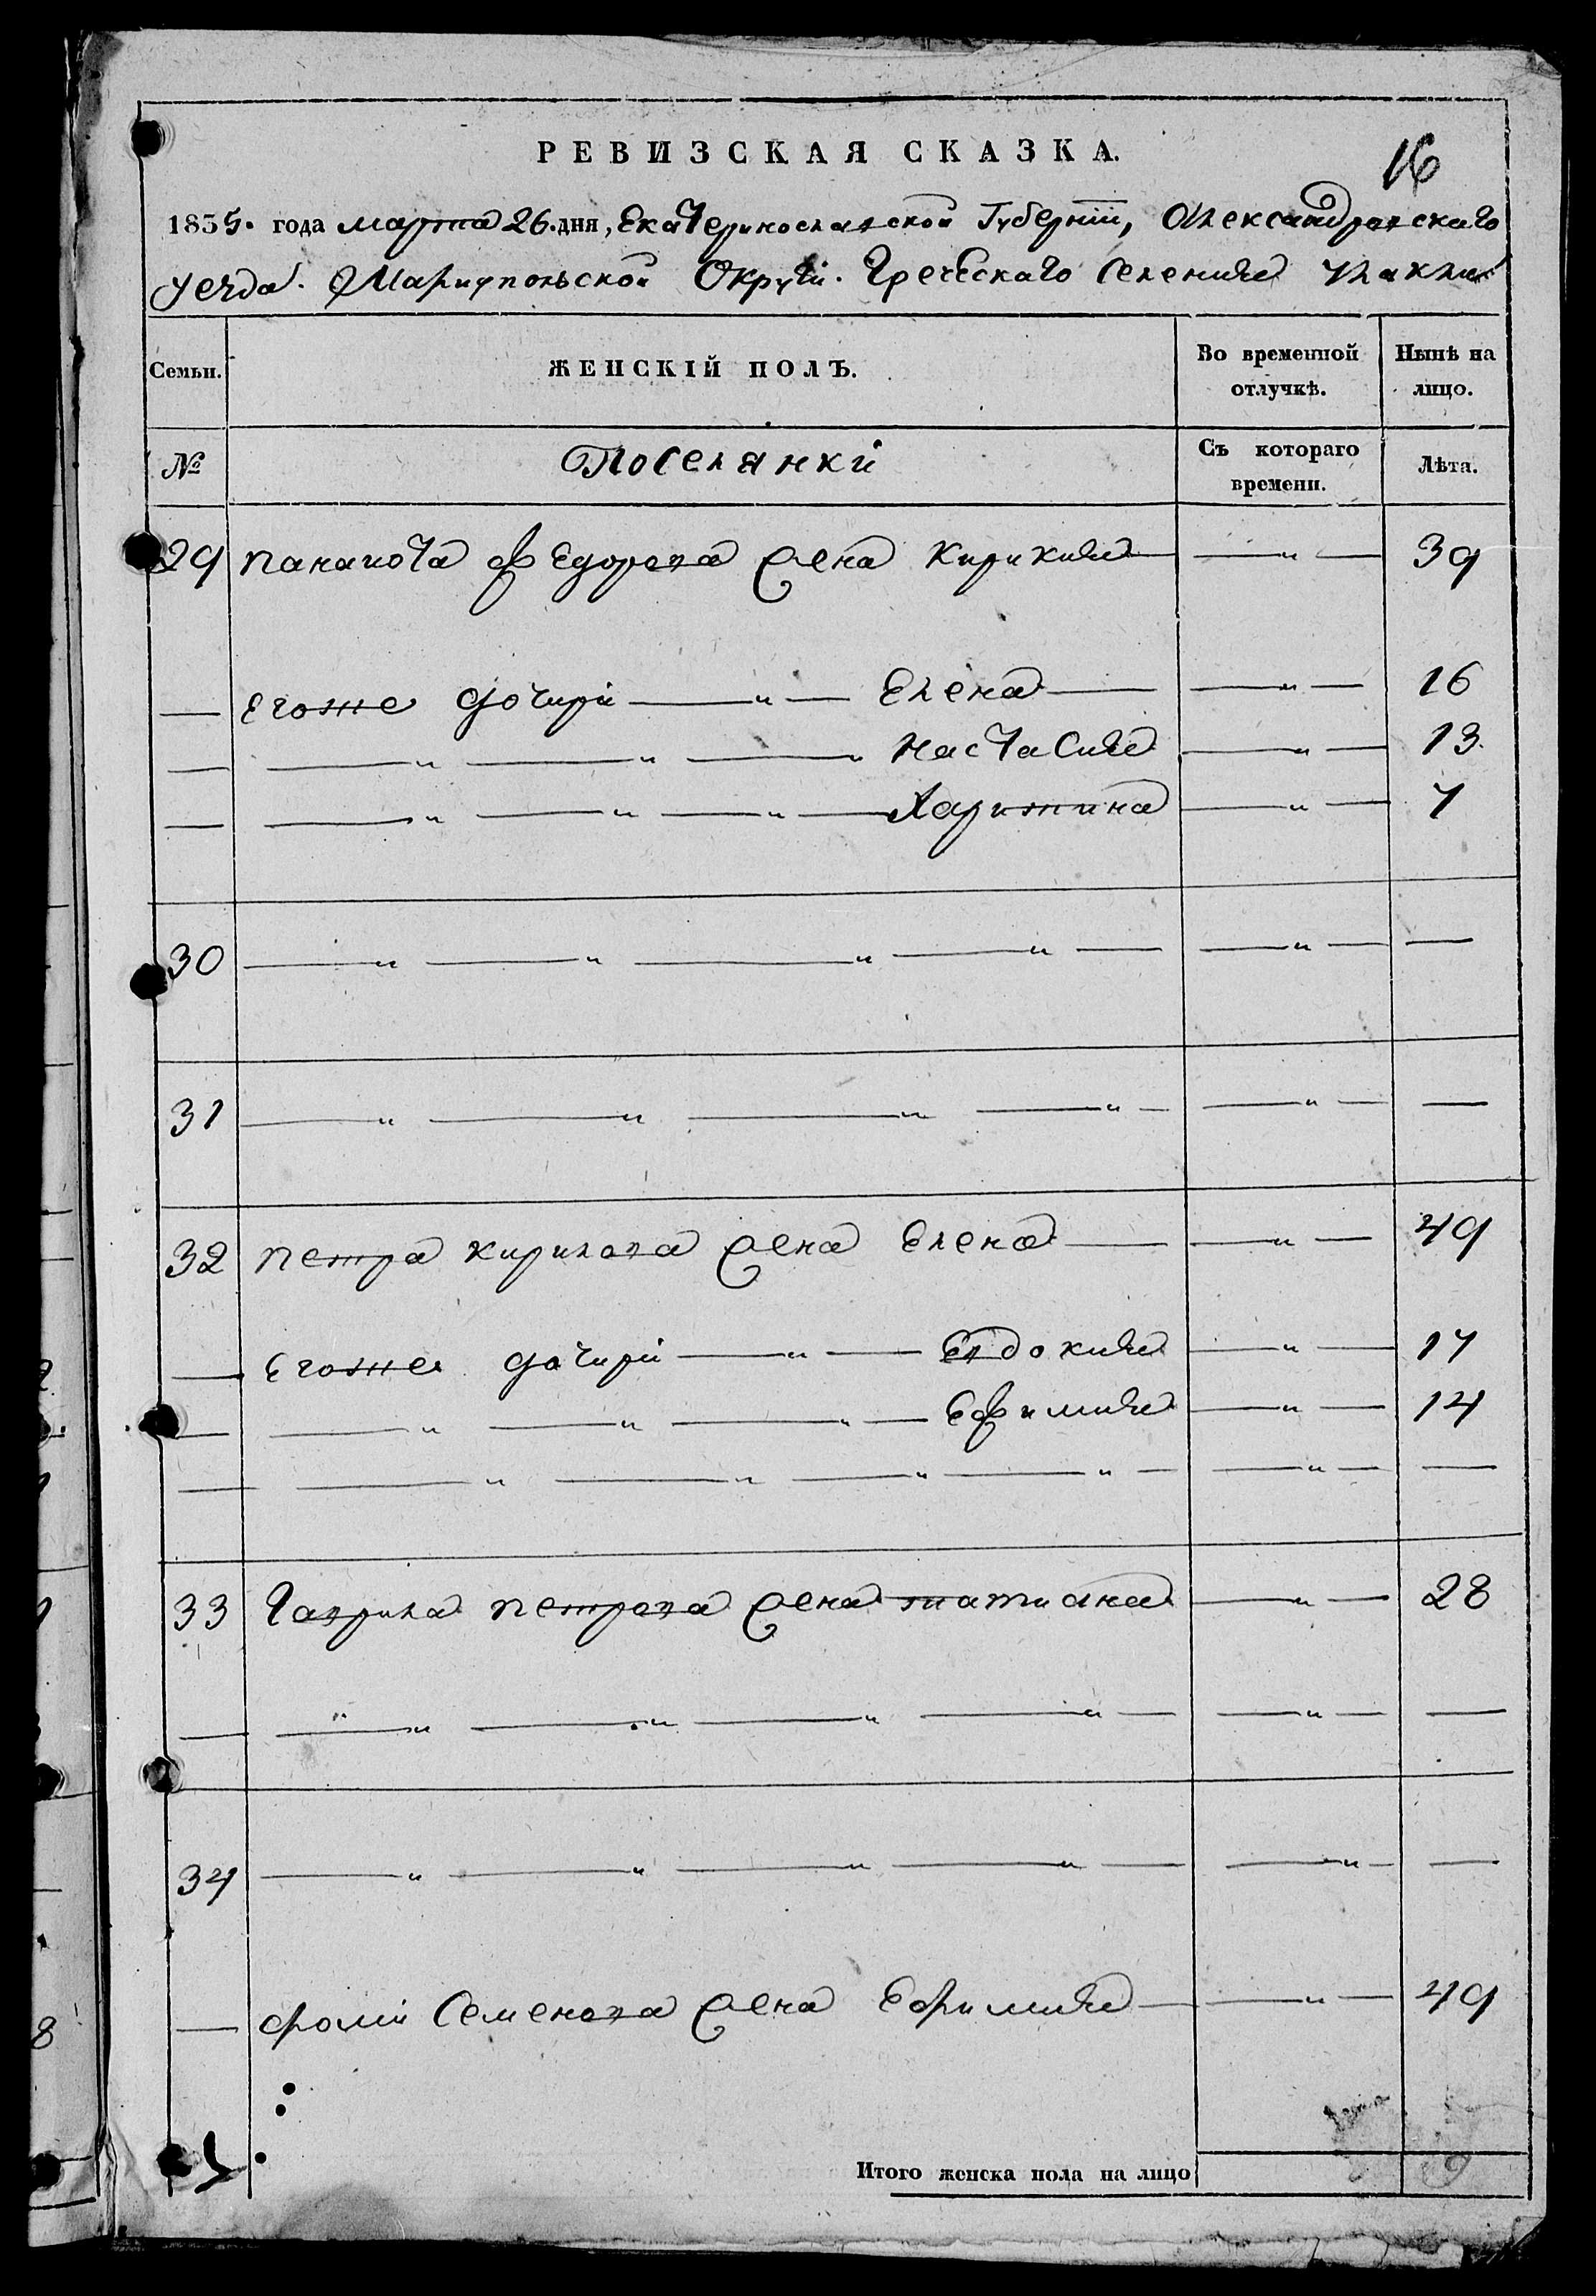 РЕВИЗСКАЯ СКАЗКА.
16
1835. года марта 26. дня, Екатеринославской Губерніи, Александровскаго
уезда. Мариупольской Округи. Греческаго Селения
Семьи. ЖЕНСКІЙ ПОЛЪ. Во временной отлучкѣ. Нынѣ на лицо.
№ Поселянки Съ котораго времени. Лѣта.
29 Панаиота Федорова жена Кирикия — " — 39
— Егоже дочири — " — Елена — — " — 16
— — " — " — " Настасия — " — 13
— — " — " — " — Харитина — " — 7
30 — " — " — " — " — — " — —
31 — " — " — " — " — — " — —
32 Петра Кирилова жена Елена — — " — 49
— Егоже дочири — " — Евдокия — " — 17
— — " — " — " — Ефимия — " — 14
— — " — " — " — " — — " — —
33 Гаврила Петрова жена Татиана — " — 28
— — " — " — " — " — — " — —
34 — " — " — " — " — — " — —
— Фоми Семенова жена Ефимия — — " — 49
Итого женска пола на лицо 9